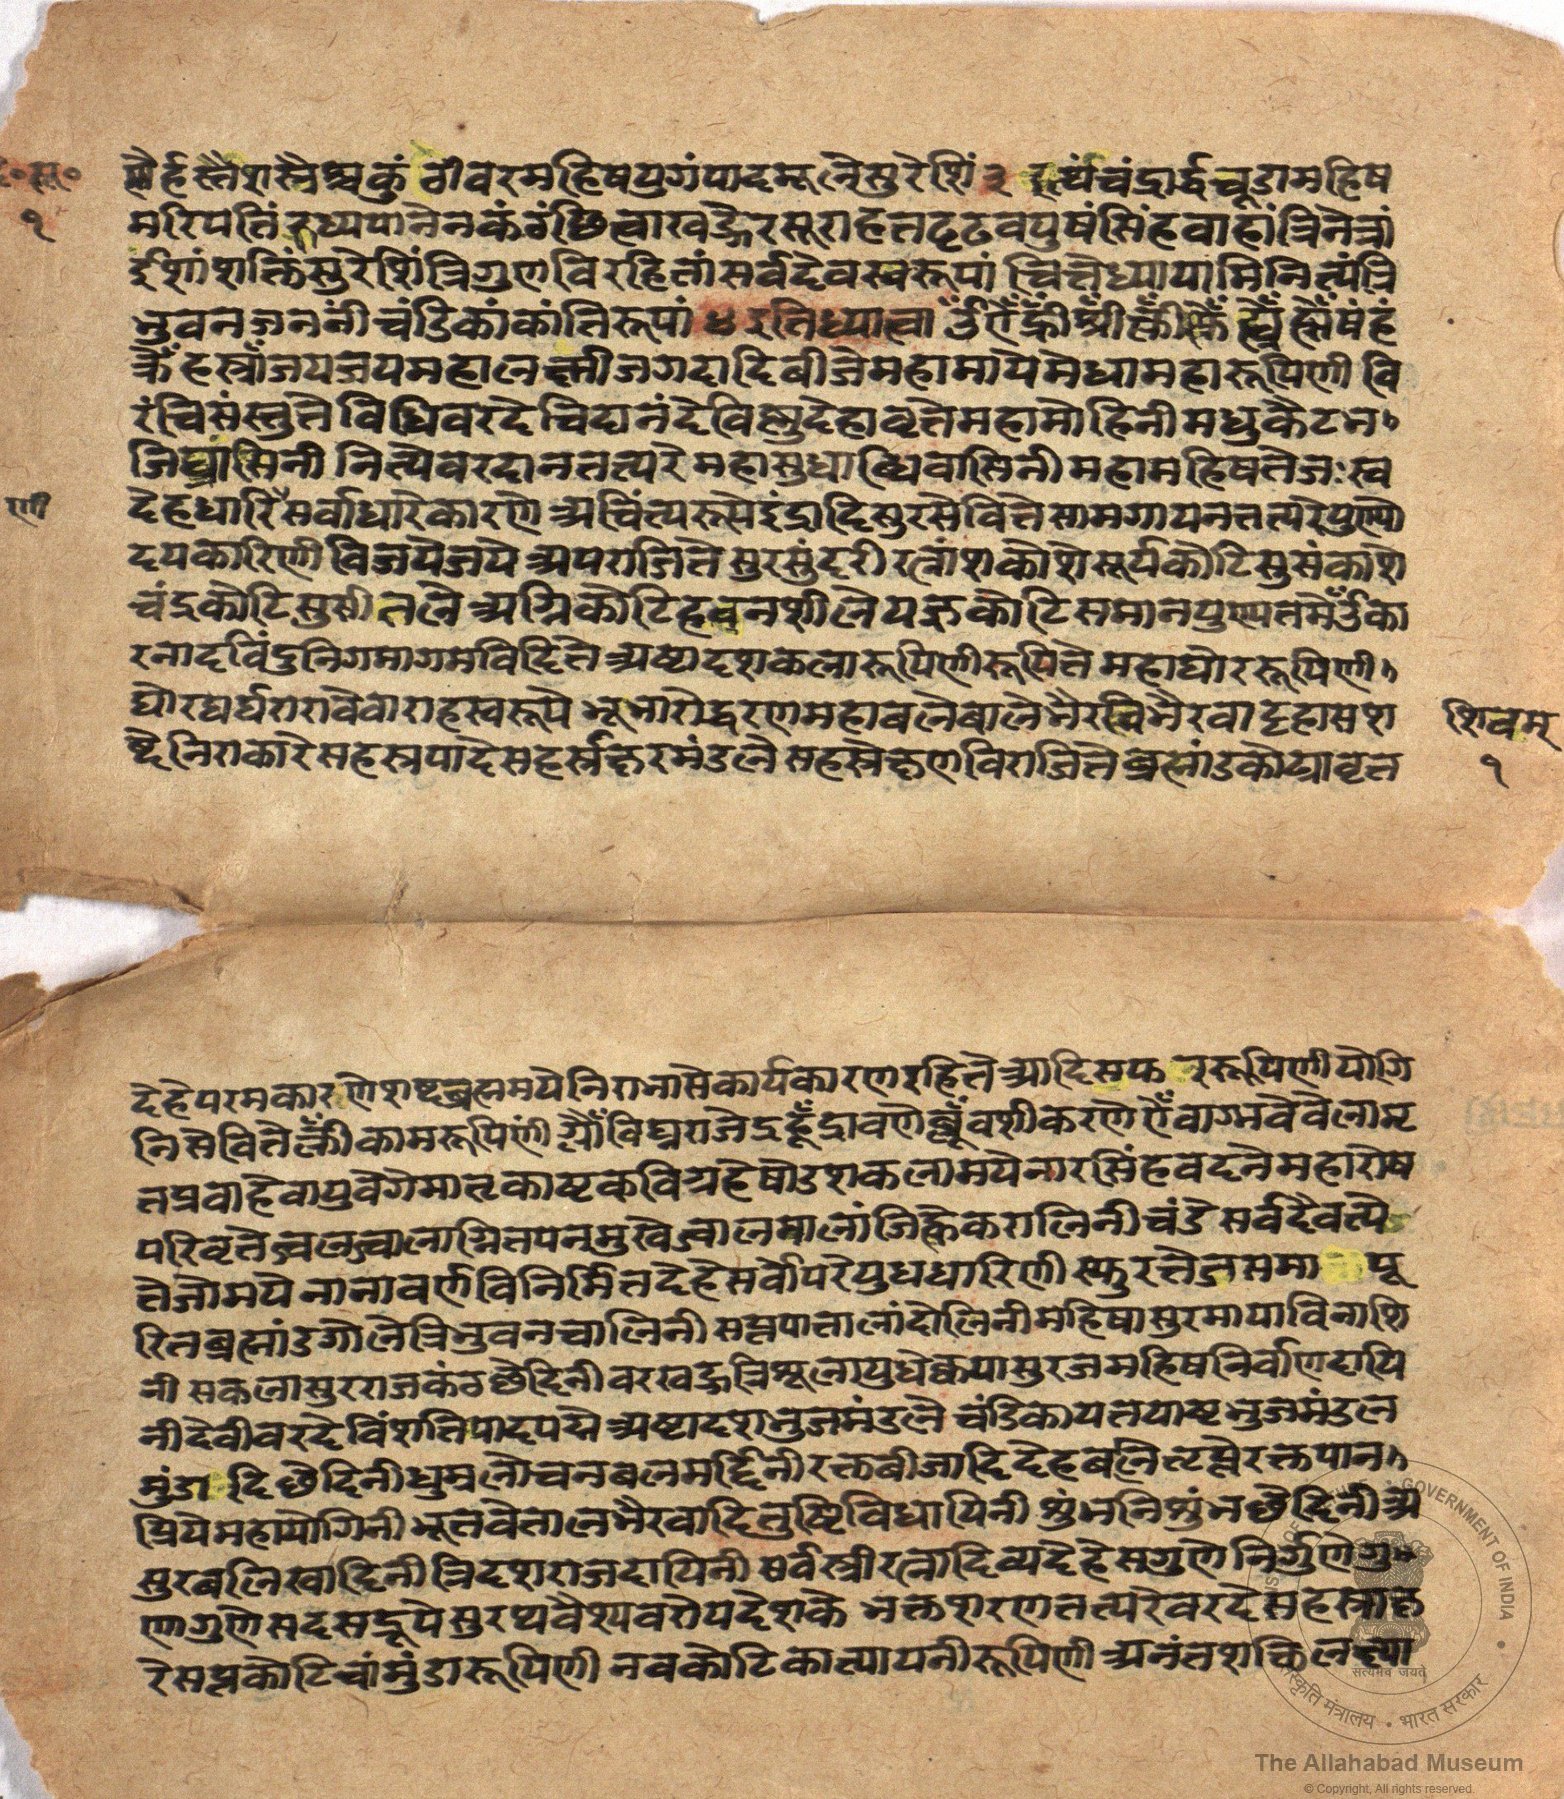 दे॰ स्त॰
१
र्हस्तैशस्त्रैश्चकुं वरमहिषपुगंपादमूलेसुरेशिं ३ चंद्रार्द्धचूडामहिष
मरिपतिं कंठंछित्वाखङ्गैरसूराहतदृढवपुषंसिंहवाहांत्रिनेत्रां
ईशांशक्तिंसुरेशिंत्रिगुणविरहितांसर्वदेवस्वरूपां चित्तेध्यायामिनित्यंत्रि
भुवनजननीं चंडिकांकांतिरूपां ४ इतिध्यात्वा
जयजयमहालक्ष्मीजगदादिवीजेमहामायेमेधामहारूपिणी वि
रंचिसंस्तुते विधिवरदे चिदानंदेविष्णुदेहावृतेमहामोहिनी मधुकैटभ
नित्यैवरदानतत्परे महासुधाब्धिवासिनी महामहिषतेजःस्व
णी
देहधारिसर्वाधारेकारणे अचिंत्यरूपेइंद्रादिसुरसेविते सामगायनतत्परेपुण्यो
दयकारिणी विजयेजये अपराजिते सुरसुंदरी रत्नांशकोशे सूर्यकोटिसुसंकाशे
चंद्रकोटिसुसीतले अग्निकोटिदहनशीले यज्ञकोटिसमानपुण्यतमे
रनादविंदुनिगमागमविदिते अष्टादशकलारूपिणीरूपिते महाघोररूपिणी
घोरघर्घरारावेवाराहस्वरूपे भूभारोद्धरणमहाबलेबाले भैरवाट्टहासश
शिवम्
१
ब्देनिराकारेसहस्त्रपादेसहस्त्रकरमंडले सहस्त्रेक्षणविराजिते ब्रह्मांडकोट्यावृत
देहेपरमकारणेशब्दब्रह्ममयेनिराभासेकार्यकारणरहिते आदि रूपिणीयोगि
निसेवितेक्लीं कामरूपिणी विघ्नराजे द्रावणे वशीकरणे ऐं वाग्भवे
तप्रवाहेवायुवेगेमातृकाष्टकविग्रहेषोडशकलामयेनारसिंहवदनेमहारोष
परिवृतेज्वलज्ज्वालाग्नितपनमुखेज्वालमालाजिह्वेकरालिनीचंडे सर्वदैवत्ये
तेजोमये नानावर्णविनिर्मितदेहेसर्वोपरेयुधधारिणी स्फुरत्तेज समा पू
रितब्रह्मांडगोलेत्रिभुवनचालिनी सप्तपातालांदोलिनीमहिषासुरमायाविनाशि
नी सकलासुरराजकंठछेदिनीवरखङ्गत्रिशूलायुधे महिषनिर्वाणदायि
नीदेवीवरदेविंशतिपादपद्मे अष्टादशभुजमंडले चंडिकायतयाष्टभुजमंडल
मुंडा दि छेदिनीधुम्रलोचनबलमर्द्दिनी रक्तबीजादिदेहबलि रक्तपान
प्रियेमहायोगिनीभूतवेतालभैरवादितुष्टिविधायिनी शुंभनिशुंभछेदिनी अ
सुरबलिखादिनी त्रिदशराजदायिनी सर्वस्त्रीरत्नादिव्यदेहेसगुणे निर्गुणेगु
णागुणे सदसद्रूपे सुरथवैश्यवरोपदेशके भक्तशरणतत्परेवरदेसहस्त्राक्ष
रेसप्तकोटिचामुंडारूपिणी नवकोटिकात्यायनीरूपिणी अनंतशक्ति
GOVERNMENT OF INDIA
सत्यमेव जयते
संस्कृति मंत्रालय • भारत सरकार
The Allahabad Museum
© Copyright, All rights reserved.